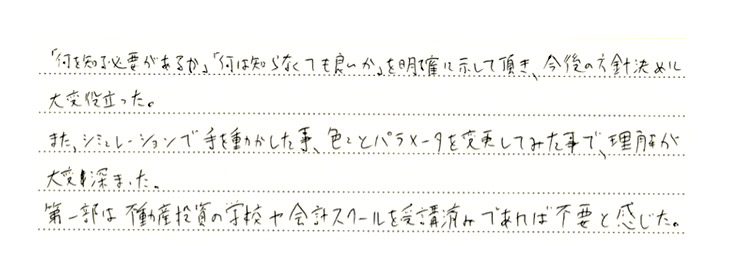 「何を知る必要があるか」「何は知らなくても良いか」を明確に示して頂き、今後の方針決めに
大変役立った。
また、シミュレーションで手を動かした事、色々とパラメータを変更してみた事で、理解が
大変深まった。
第一部は不動産投資の学校や会計スクールを受講済みであれば不要と感じた。